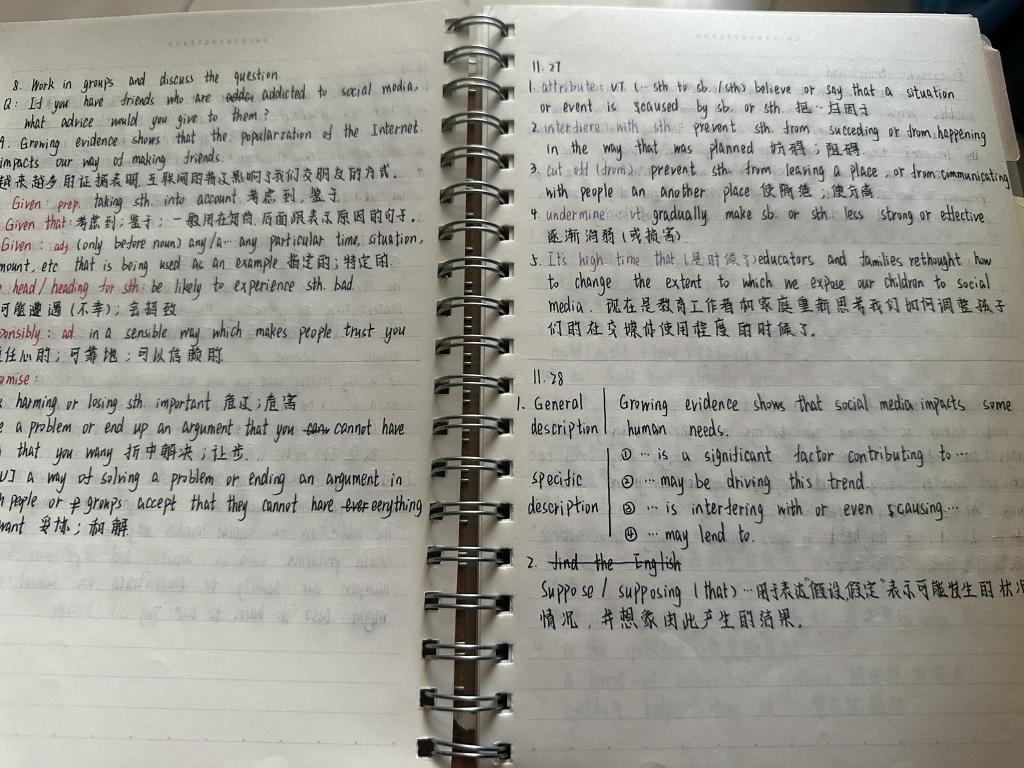 8. Work in groups and discuss the question.
Q: If you have friends who are addicted to social media,
what advice would you give to them?
9. Growing evidence shows that the popularization of the Internet
impacts our way of making friends.
越来越多的证据表明,互联网的普及影响了我们交朋友的方式.
Given: prep. taking sth. into account 考虑到,鉴于
Given that: 考虑到;鉴于;一般用在句首,后面跟表示原因的句子.
Given: adj (only before noun) any/a… any particular time, situation,
mount, etc that is being used as an example 指定的;特定的.
head/heading for sth: be likely to experience sth. bad.
可能遭遇(不幸);会招致
onsibly: ad. in a sensible way which makes people trust you
任心的;可靠地;可以信赖的
omise:
harming or losing sth. important 危及;危害
a problem or end up an argument that you cannot have
that you wany 折中解决;让步.
U] a way of solving a problem or ending an argument in
h people or groups accept that they cannot have everything
want 妥协;和解
11.27
1. attribute: VT. (… sth to sb. /sth) believe or say that a situation
or event is caused by sb. or sth. 把…归因于
2. interfere with sth: prevent sth. from succeding or from happening
in the way that was planned 妨碍;阻碍.
3. cut off (from): prevent sth from leaving a place, or from communicating
with people an another place 使隔绝;使
4. undermine: vt. gradually make sb. or sth. less strong or effective
逐渐削弱(或损害)
5. It's high time that (是时候了) educators and families rethought how
to change the extent to which we expose our children to social
media. 现在是教育工作者和家庭重新思考我们如何调整孩子
们的社交媒体使用程度的时候了.
11.28
1. General description
Growing evidence shows that social media impacts some
human needs.
specific description
① … is a significant factor contributing to …
② … may be driving this trend.
③ … is interfering with or even causing …
④ … may lend to.
2. find the English
Suppose / supposing (that) … 用于表达"假设,假定"表示可能发生的状况
情况,并想象由此产生的结果.